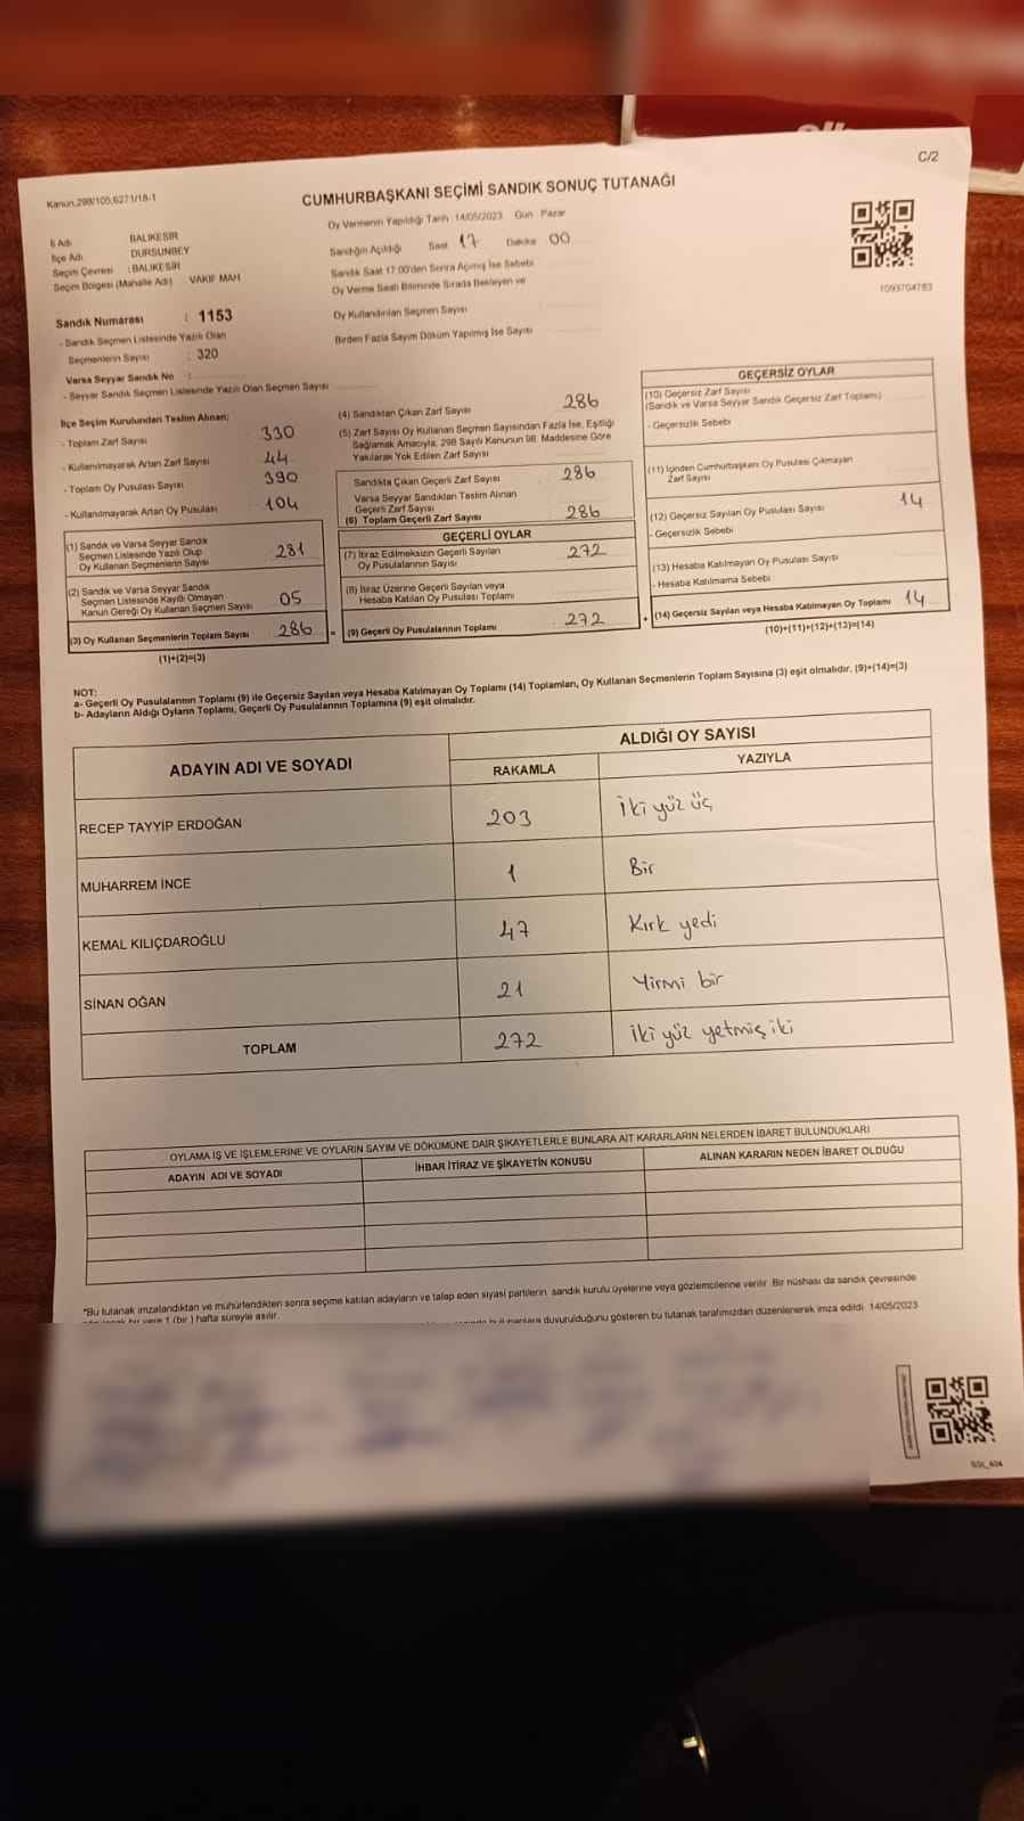 C/2
Kanun,298/105,6271/18-1
CUMHURBAŞKANI SEÇİMİ SANDIK SONUÇ TUTANAĞI
İl Adı BALIKESİR
İlçe Adı DURSUNBEY
Seçim Çevresi : BALIKESİR
Seçim Bölgesi (Mahalle Adı) VAKIF MAH
Oy Vermenin Yapıldığı Tarih 14/05/2023 Gün Pazar
Sandığın Açıldığı Saat 17 Dakika 00
Sandık Saat 17.00'den Sonra Açılmış İse Sebebi
Oy Verme Saati Bitiminde Sırada Bekleyen ve
Oy Kullandırılan Seçmen Sayısı
Birden Fazla Sayım Döküm Yapılmış İse Sayısı
1093704783
Sandık Numarası : 1153
- Sandık Seçmen Listesinde Yazılı Olan
Seçmenlerin Sayısı : 320
Varsa Seyyar Sandık No :
- Seyyar Sandık Seçmen Listesinde Yazılı Olan Seçmen Sayısı
İlçe Seçim Kurulundan Teslim Alınan;
- Toplam Zarf Sayısı 330
- Kullanılmayarak Artan Zarf Sayısı 44
- Toplam Oy Pusulası Sayısı 390
- Kullanılmayarak Artan Oy Pusulası 104
(1) Sandık ve Varsa Seyyar Sandık
Seçmen Listesinde Yazılı Olup
Oy Kullanan Seçmenlerin Sayısı 281
(2) Sandık ve Varsa Seyyar Sandık
Seçmen Listesinde Kayıtlı Olmayan
Kanun Gereği Oy Kullanan Seçmen Sayısı 05
(3) Oy Kullanan Seçmenlerin Toplam Sayısı 286
(1)+(2)=(3)
(4) Sandıktan Çıkan Zarf Sayısı 286
(5) Zarf Sayısı Oy Kullanan Seçmen Sayısından Fazla İse, Eşitliği
Sağlamak Amacıyla, 298 Sayılı Kanunun 98. Maddesine Göre
Yakılarak Yok Edilen Zarf Sayısı
Sandıkta Çıkan Geçerli Zarf Sayısı 286
Varsa Seyyar Sandıktan Teslim Alınan
Geçerli Zarf Sayısı
(6) Toplam Geçerli Zarf Sayısı 286
GEÇERLİ OYLAR
(7) İtiraz Edilmeksizin Geçerli Sayılan
Oy Pusulalarının Sayısı 272
(8) İtiraz Üzerine Geçerli Sayılan veya
Hesaba Katılan Oy Pusulası Toplamı
= (9) Geçerli Oy Pusulalarının Toplamı 272
GEÇERSİZ OYLAR
(10) Geçersiz Zarf Sayısı
(Sandık ve Varsa Seyyar Sandık Geçersiz Zarf Toplamı)
- Geçersizlik Sebebi
(11) İçinden Cumhurbaşkanı Oy Pusulası Çıkmayan
Zarf Sayısı
(12) Geçersiz Sayılan Oy Pusulası Sayısı 14
- Geçersizlik Sebebi
(13) Hesaba Katılmayan Oy Pusulası Sayısı
- Hesaba Katılmama Sebebi
+ (14) Geçersiz Sayılan veya Hesaba Katılmayan Oy Toplamı 14
(10)+(11)+(12)+(13)=(14)
NOT:
a- Geçerli Oy Pusulalarının Toplamı (9) ile Geçersiz Sayılan veya Hesaba Katılmayan Oy Toplamı (14) Toplamları, Oy Kullanan Seçmenlerin Toplam Sayısına (3) eşit olmalıdır. (9)+(14)=(3)
b- Adayların Aldığı Oyların Toplamı, Geçerli Oy Pusulalarının Toplamına (9) eşit olmalıdır.
ADAYIN ADI VE SOYADI ALDIĞI OY SAYISI
RAKAMLA YAZIYLA
RECEP TAYYİP ERDOĞAN 203 İki yüz üç
MUHARREM İNCE 1 Bir
KEMAL KILIÇDAROĞLU 47 Kırk yedi
SİNAN OĞAN 21 Yirmi bir
TOPLAM 272 İki yüz yetmiş iki
OYLAMA İŞ VE İŞLEMLERİNE VE OYLARIN SAYIM VE DÖKÜMÜNE DAİR ŞİKAYETLERLE BUNLARA AİT KARARLARIN NELERDEN İBARET BULUNDUKLARI
ADAYIN ADI VE SOYADI İHBAR İTİRAZ VE ŞİKAYETİN KONUSU ALINAN KARARIN NEDEN İBARET OLDUĞU
*Bu tutanak imzalandıktan ve mühürlendikten sonra seçime katılan adayların ve talep eden siyasi partilerin sandık kurulu üyelerine veya gözlemcilerine verilir. Bir nüshası da sandık çevresinde
bir yere 1 (bir) hafta süreyle asılır.
duyurulduğunu gösteren bu tutanak tarafımızdan düzenlenerek imza edildi. 14/05/2023